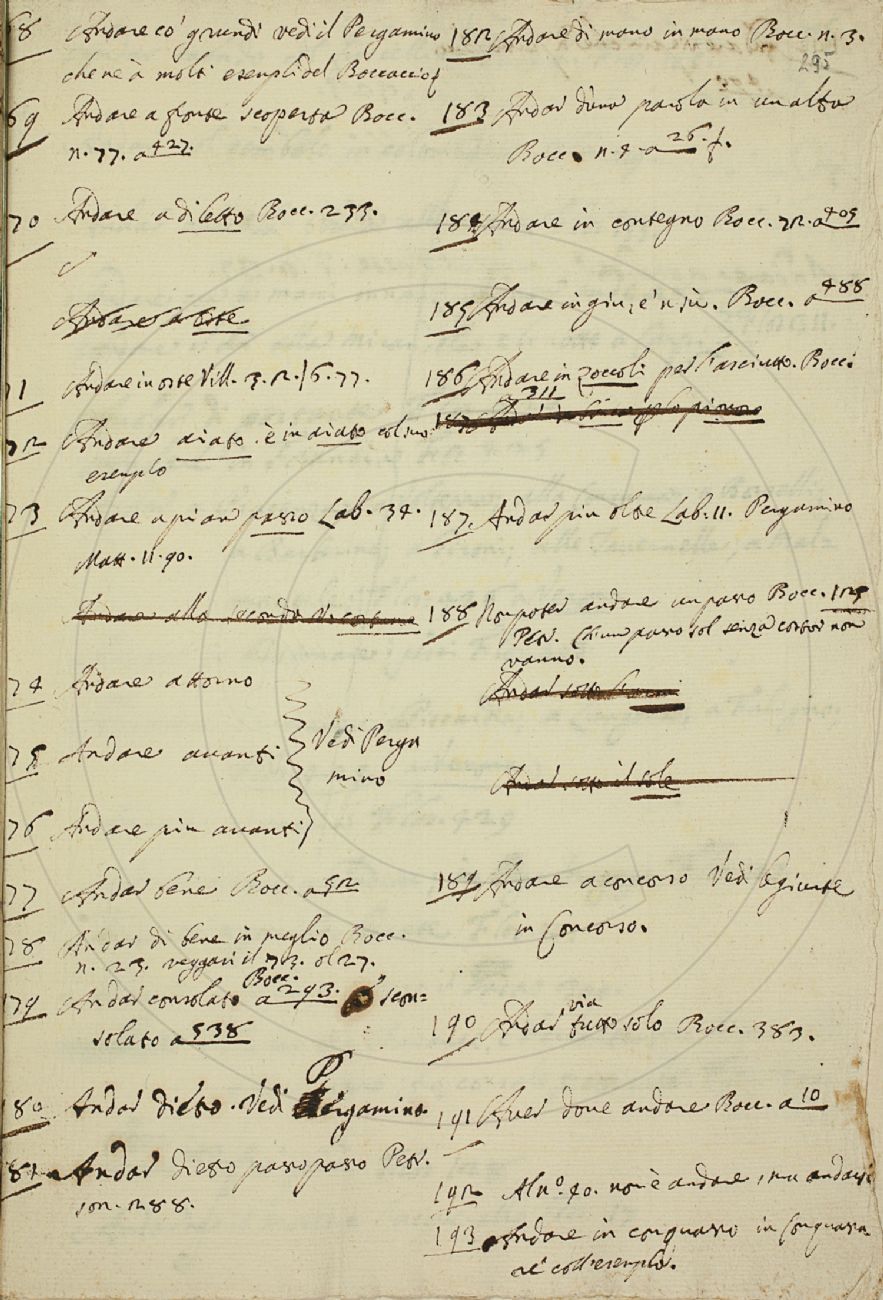 68 Andare co' grandi vedi il Pergamino
che n'è à molti esempli del Boccaccio
69 Andare a fronte scoperta Bocc.
n. 77. a 427.
70 Andare a diletto Bocc. 233.
Andare a oste
71 Andare in oste Vill. 3. 2. / 6. 77.
72 Andare aiato. è in aiato col suo
esemplo
73 Andare a pian passo Lab. 34.
Matt. 11. 90.
Andare alla seconda
74 Andare attorno
75 Andare avanti
76 Andare più avanti
Vedi Perga
mino
77 Andar bene Bocc. a 52
78 Andar di bene in meglio Bocc.
n. 23. veggasi il 73. ol 27.
179 Andar consolato Bocc. a 293. scon=
solato a 538
180 Andar dieto. Vedi Pergamino
81. Andar dieto passo passo Petr.
son. 288.
295
182 Andare di mano in mano Bocc. n. 3.
183 Andar d'una parola in un altra
Bocc. n. 4. a 26. f.
184 Andare in contegno Bocc. 72. a 405
185 Andare in giu, e 'n sù. Bocc. a 488
186 Andare in zoccoli per l'asciutto. Bocc.
a 311
187. Andar più oltre Lab. 11. Pergamino
188 Non poter andare un passo Bocc. 125
Petr. Ch'un passo sol senza costor non
vanno.
Andar sotto l'armi
Andar sotto il sole
189 Andare a concorso Vedi l'agiunte
in Concorso.
190 Andar via tutto solo Bocc. 383.
191 Aver dove andare Bocc. a 10
192 Al n°. 40. non è andare, ma andarsi
193 Andare in conquasso in Conquassa
re coll'esemplo.